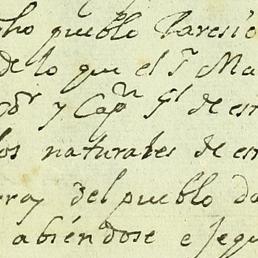 ho pueblo Paresio
de lo que el Sr Ma
Gor y Capn Gl de est
los naturales de es
del pueblo de
abiendose e segu